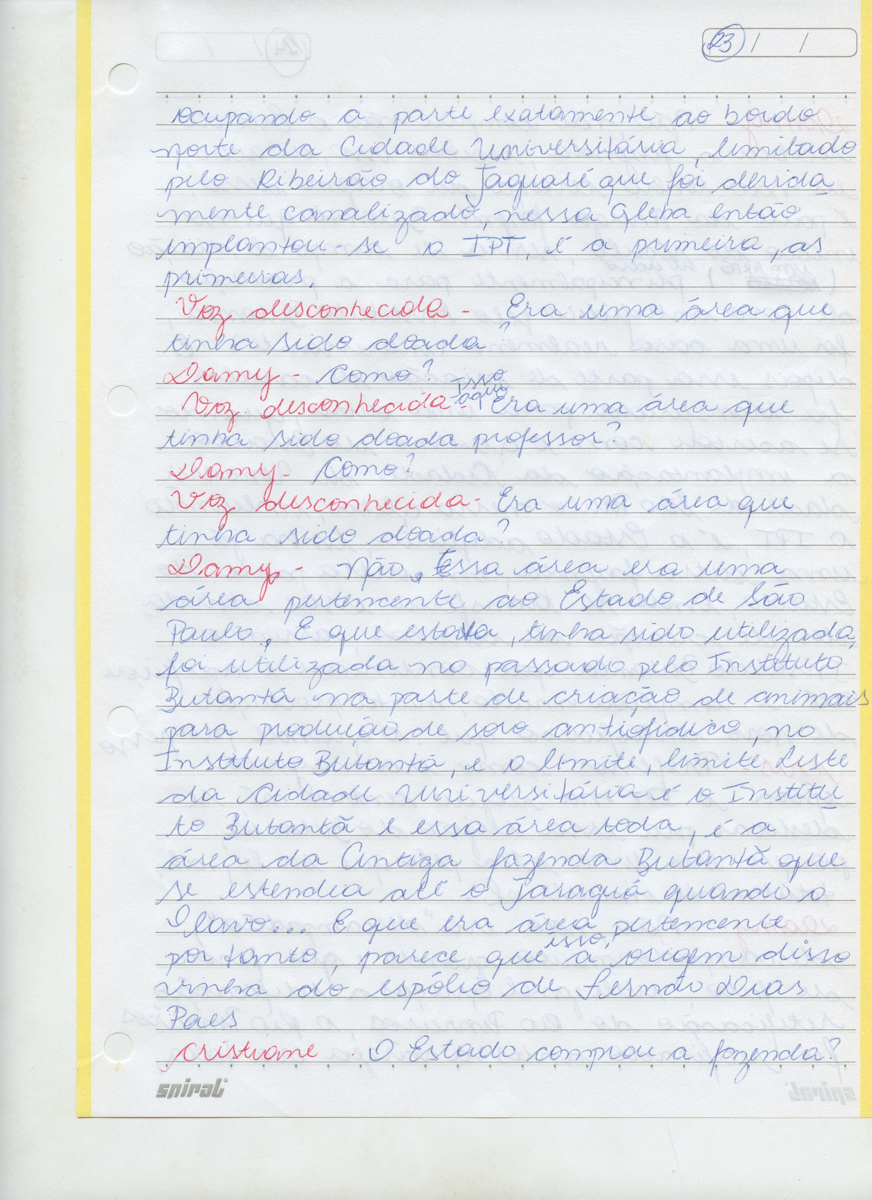 23 / /
ocupando a parte exatamente ao bordo
norte da Cidade Universitária, limitado
pelo Ribeirão do Jaguaré que foi devida
mente canalizado, nessa Gleba então
implantou se o IPT, é a primeira, as
primeiras.
Voz desconhecida - Era uma área que
tinha sido doada?
Damy - Como?
Voz desconhecida - Isso aqui Era uma área que
tinha sido doada professor?
Damy - Como?
Voz desconhecida - Era uma área que
tinha sido doada?
Damy - Não, Essa área era uma
área pertencente ao Estado de São
Paulo, E que estava, tinha sido utilizada,
foi utilizada no passado pelo Instituto
Butantã na parte de criação de animais
para produção de soro antiofídico, no
Instituto Butantã, e o limite, limite Leste
da Cidade Universitária é o Institu
to Butantã e essa área toda, é a
área da Antiga fazenda Butantã que
se estendia até o Jaraguá quando o
Olavo... E que era área pertencente
portanto, parece que isso, a origem disso
vinha do espólio de Fernão Dias
Paes
Cristiane - O Estado comprou a fazenda?
spiral